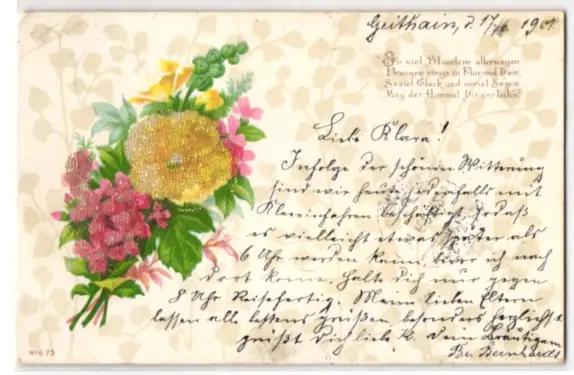 Geithain, d. 17/6. 1901.
So viel Blumen allerwegen
Prangen rings in Flur und Hain,
So viel Glück und so viel Segen
Mög der Himmel Dir verleihn.
Liebe Klara!
Infolge der schönen Witterung
sind wir heute jedenfalls mit
Kleeeinfahren beschäftigt, sodaß
es vielleicht etwas später als
6 Uhr werden kann, bevor ich nach
dort komme. Halte Dich nur gegen
8 Uhr Reisefertig. Meine lieben Eltern
lassen alle bestens grüßen, besonders herzlichst
grüßt Dich liebe K. Dein Bräutigam
Br. Bernhardt
No 675